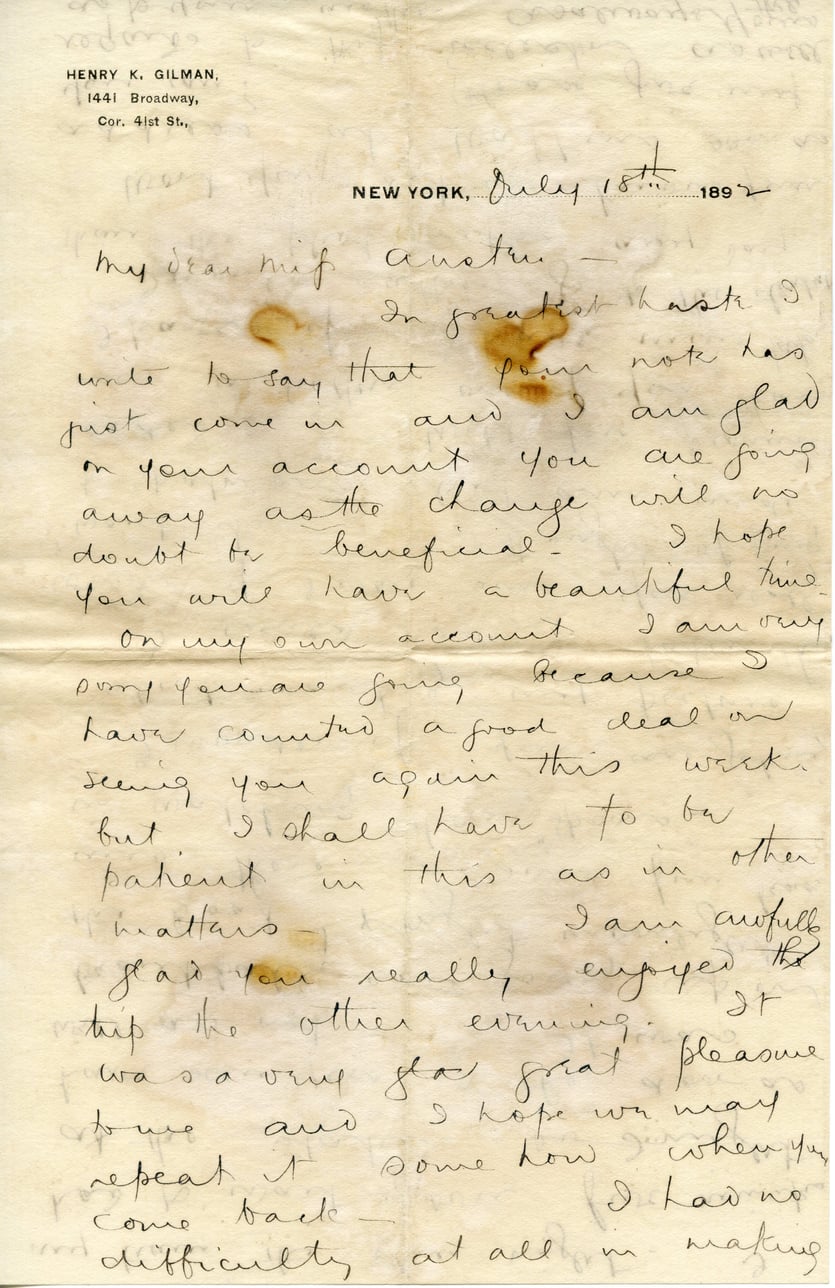 HENRY K. GILMAN,
1441 Broadway,
Cor. 41st St.,
NEW YORK, July 18th 1892
My dear Miss Austen —
In greatest haste I
write to say that your note has
just come in and I am glad
on your account you are going
away as the change will no
doubt be beneficial - I hope
you will have a beautiful time.
On my own account I am very
sorry you are going because I
have counted a good deal on
seeing you again this week.
but I shall have to be
patient in this as in other
matters - I am awfully
glad you really enjoyed the
trip the other evening. It
was a very gla great pleasure
to me and I hope we may
repeat it some how when you
come back — I had no
difficulty at all in making